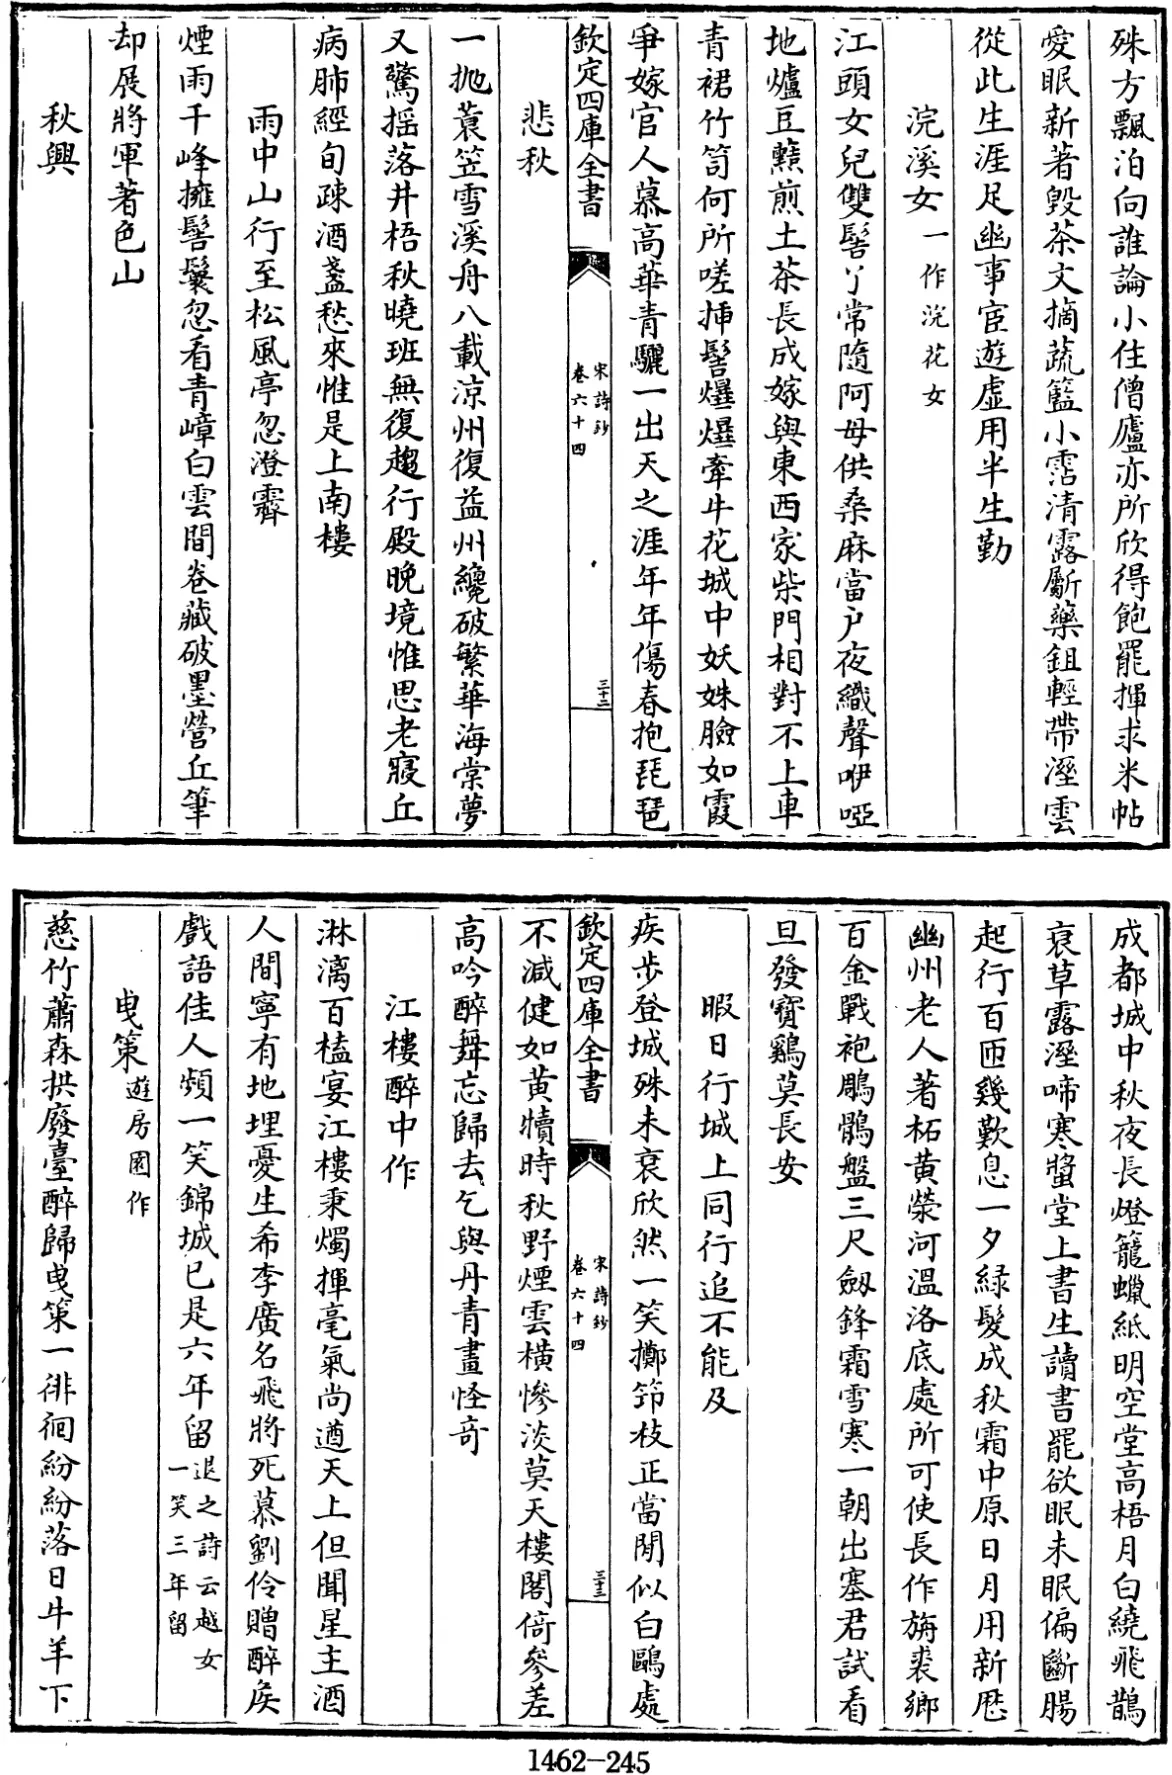 殊方飄泊向誰論小住僧廬亦所欣得飽罷揮求米帖
愛眠新著毀茶文摘蔬籃小霑清露斸藥鉏輕帶溼雲
從此生涯足幽事宦遊虛用半生勤
浣溪女一作浣花女
江頭女兒雙髻丫常隨阿母供桑麻當户夜織聲咿啞
地爐豆䕸煎土茶長成嫁與東西家柴門相對不上車
青裙竹笥何所嗟插髻爗爗牽牛花城中妖姝臉如霞
爭嫁官人慕高華青驪一出天之涯年年傷春抱琵琶
欽定四庫全書
宋詩鈔
卷六十四
三十二
悲秋
一抛蓑笠雪溪舟八載涼州復益州纔破繁華海棠夢
又驚揺落井梧秋曉班無復趨行殿晚境惟思老寢丘
病肺經旬疎酒盞愁來惟是上南樓
雨中山行至松風亭忽澄霽
煙雨千峰擁髻鬟忽看青嶂白雲間卷藏破墨營丘筆
却展將軍著色山
秋興
成都城中秋夜長燈籠蠟紙明空堂高梧月白繞飛鵲
衰草露溼啼寒螀堂上書生讀書罷欲眠未眠偏斷腸
起行百匝幾歎息一夕緑髮成秋霜中原日月用新厯
幽州老人著柘黃滎河温洛底處所可使長作旃裘鄉
百金戰袍鵰鶻盤三尺劒鋒霜雪寒一朝出塞君試看
旦發寶鷄莫長安
暇日行城上同行追不能及
疾步登城殊未衰欣然一笑擲笻枝正當閒似白鷗處
不減健如黃犢時秋野煙雲橫慘淡莫天樓閣倚參差
高吟醉舞忘歸去乞與丹青畫怪奇
欽定四庫全書
宋詩鈔
卷六十四
三十三
江樓醉中作
淋漓百榼宴江樓秉燭揮毫氣尚遒天上但聞星主酒
人間寧有地埋憂生希李廣名飛將死慕劉伶贈醉矦
戲語佳人頻一笑錦城已是六年留退之詩云越女一笑三年留
曳策遊房園作
慈竹蕭森拱廢臺醉歸曳策一徘徊紛紛落日牛羊下
1462-245